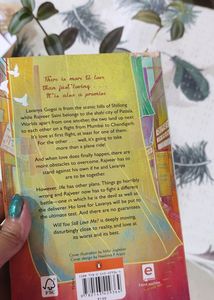 There is more to love
than just loving
It is also a promise
Lavanya Gogoi is from the scenic hills of Shillong
while Rajveer Saini belongs to the shahi city of Patiala.
Worlds apart from one another, the two land up next
to each other on a flight from Mumbai to Chandigarh.
It's love at first flight, at least for one of them.
For the other . . . well, it's going to take
more than a plane ride!
And when love does finally happen, there are
more obstacles to overcome. Rajveer has to
stand against his own if he and Lavanya
are to be together.
However, life has other plans. Things go horribly
wrong and Rajveer now has to fight a different
battle—one in which he is the devil as well as
the deliverer. His love for Lavanya will be put to
the ultimate test. And there are no guarantees.
Will You Still Love Me? is deeply moving,
disturbingly close to reality, and love at
its worst and its best.
Cover illustration by
Cover design by Neelima P Aryan
FSC